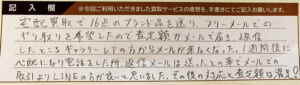 記入欄
※今回ご利用いただきました買取サービスの感想を、手書きにてご記入お願いします。
宅配買取で16点のブランド品を送り、フリーメールでの
やり取りを希望したので査定額がメールで届き、返信
したところギャラリーLFの方からメールが来なくなった。1週間後に
心配になり電話をした所、返信メールは送ったとの事でメールでの
取引よりLINEの方が良いと思いました。その後の対応と査定額は満足!